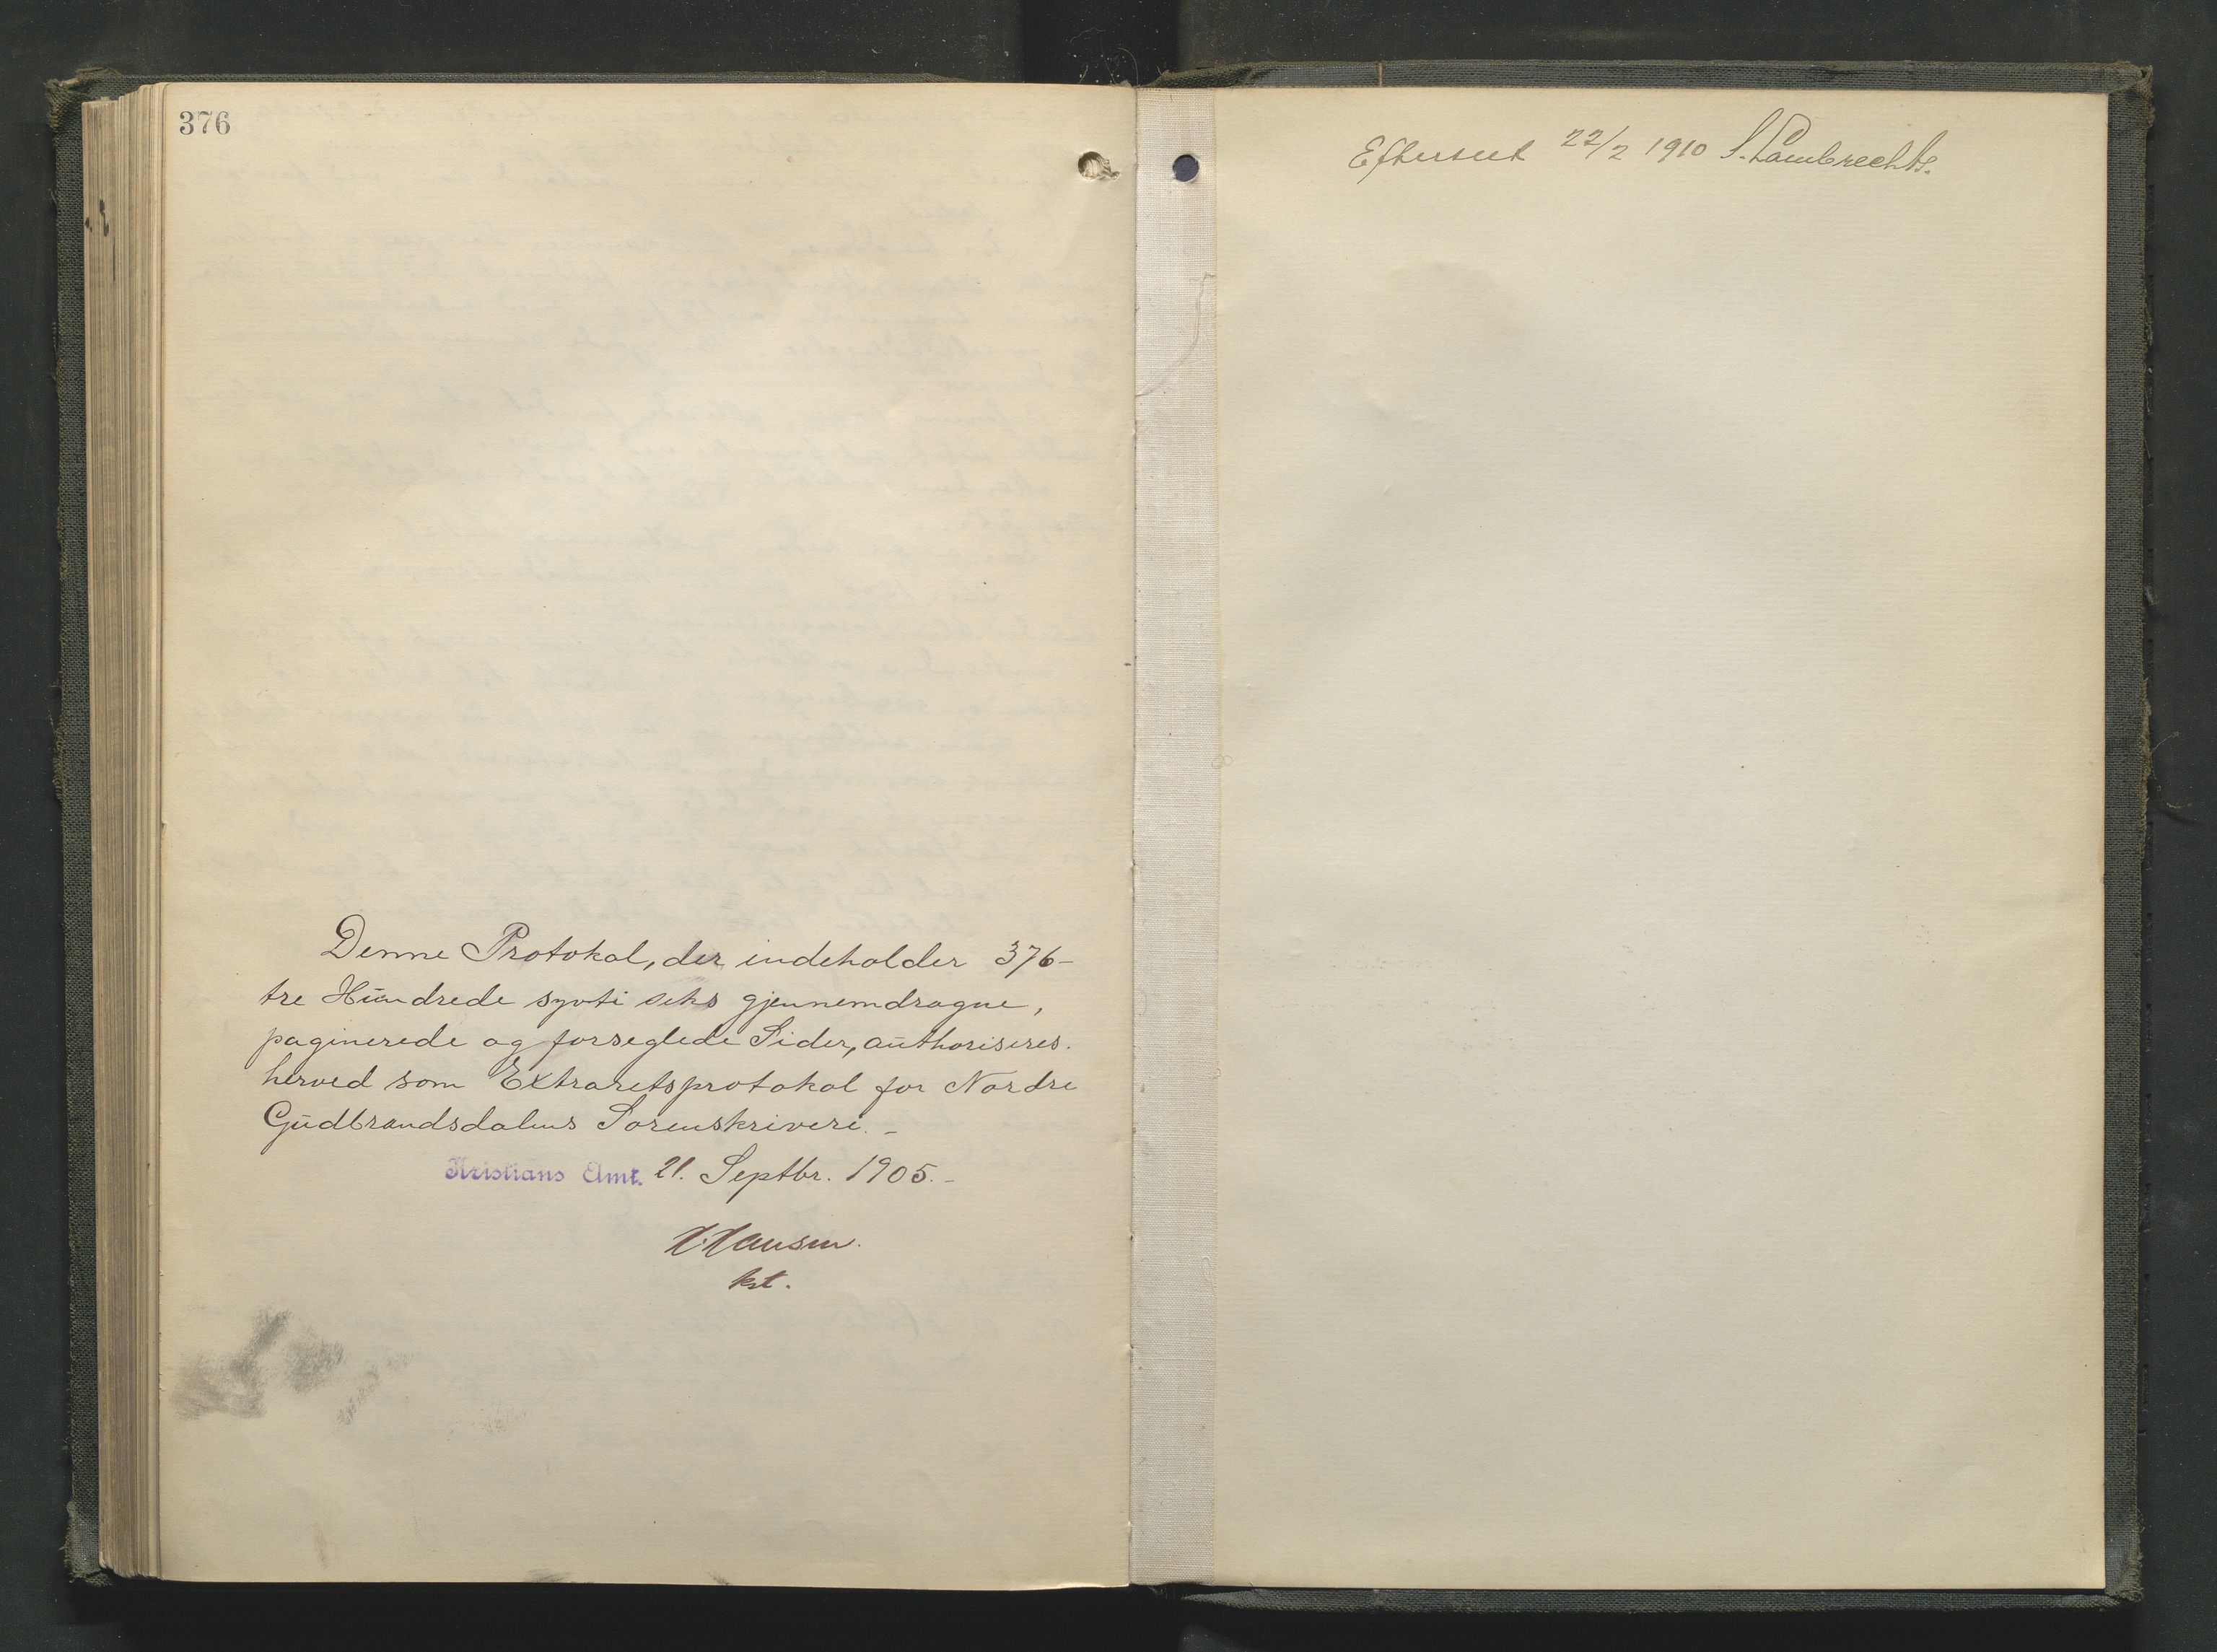 376
Denne Protokol, der indeholder 376-
tre Hundrede sytti seks gjennemdragne,
paginerede og forseglede Sider, authoriseres.
herved som Extraretsprotokol for Nordre
Gudbrandsdalens Sorenskriveri. -
Kristians Amt. 21. Septbr. 1905. -
H Hansen.
kst.
Efterseet 22/2 1910 S. Lambrechts.